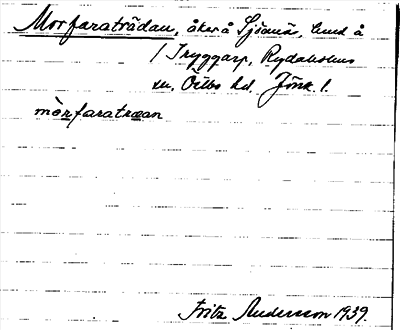 Morfaraträdan, åker å Sjöanäs, hmd å
1 Tryggarp, Rydaholms
sn, Östbo hd. Jönk. l.
mòrfaratræan
Fritz Andersson 1939.